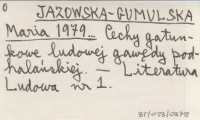 0
JAZOWSKA-GUMULSKA
Maria 1979. Cechy gatun-
kowe ludowej gawędy pod-
halańskiej. — Literatura
Ludowa nr 1.